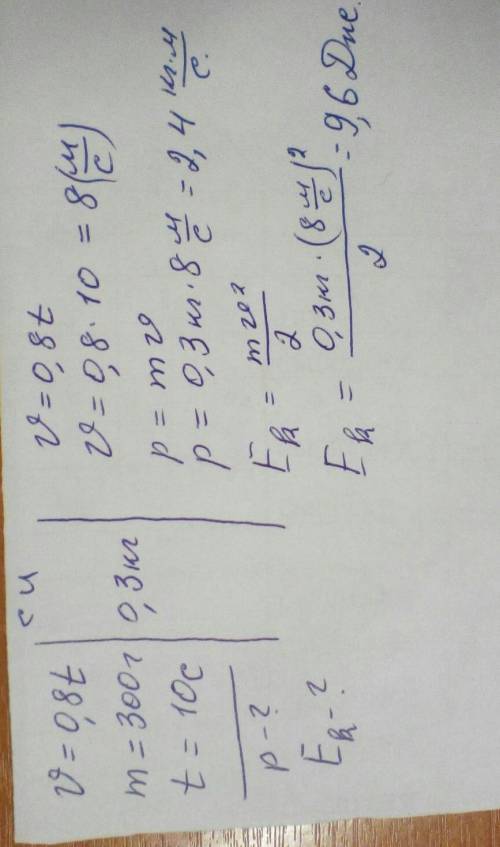 си
υ = 0,8t
m = 300г
0,3кг
t = 10с
p - ?
Eк - ?
υ = 0,8t
υ = 0,8 · 10 = 8 (м/с)
p = mυ
p = 0,3кг · 8 м/с = 2,4 кг·м/с.
Eк = mυ²/2
Eк = 0,3кг · (8 м/с)²/2 = 9,6 Дж.